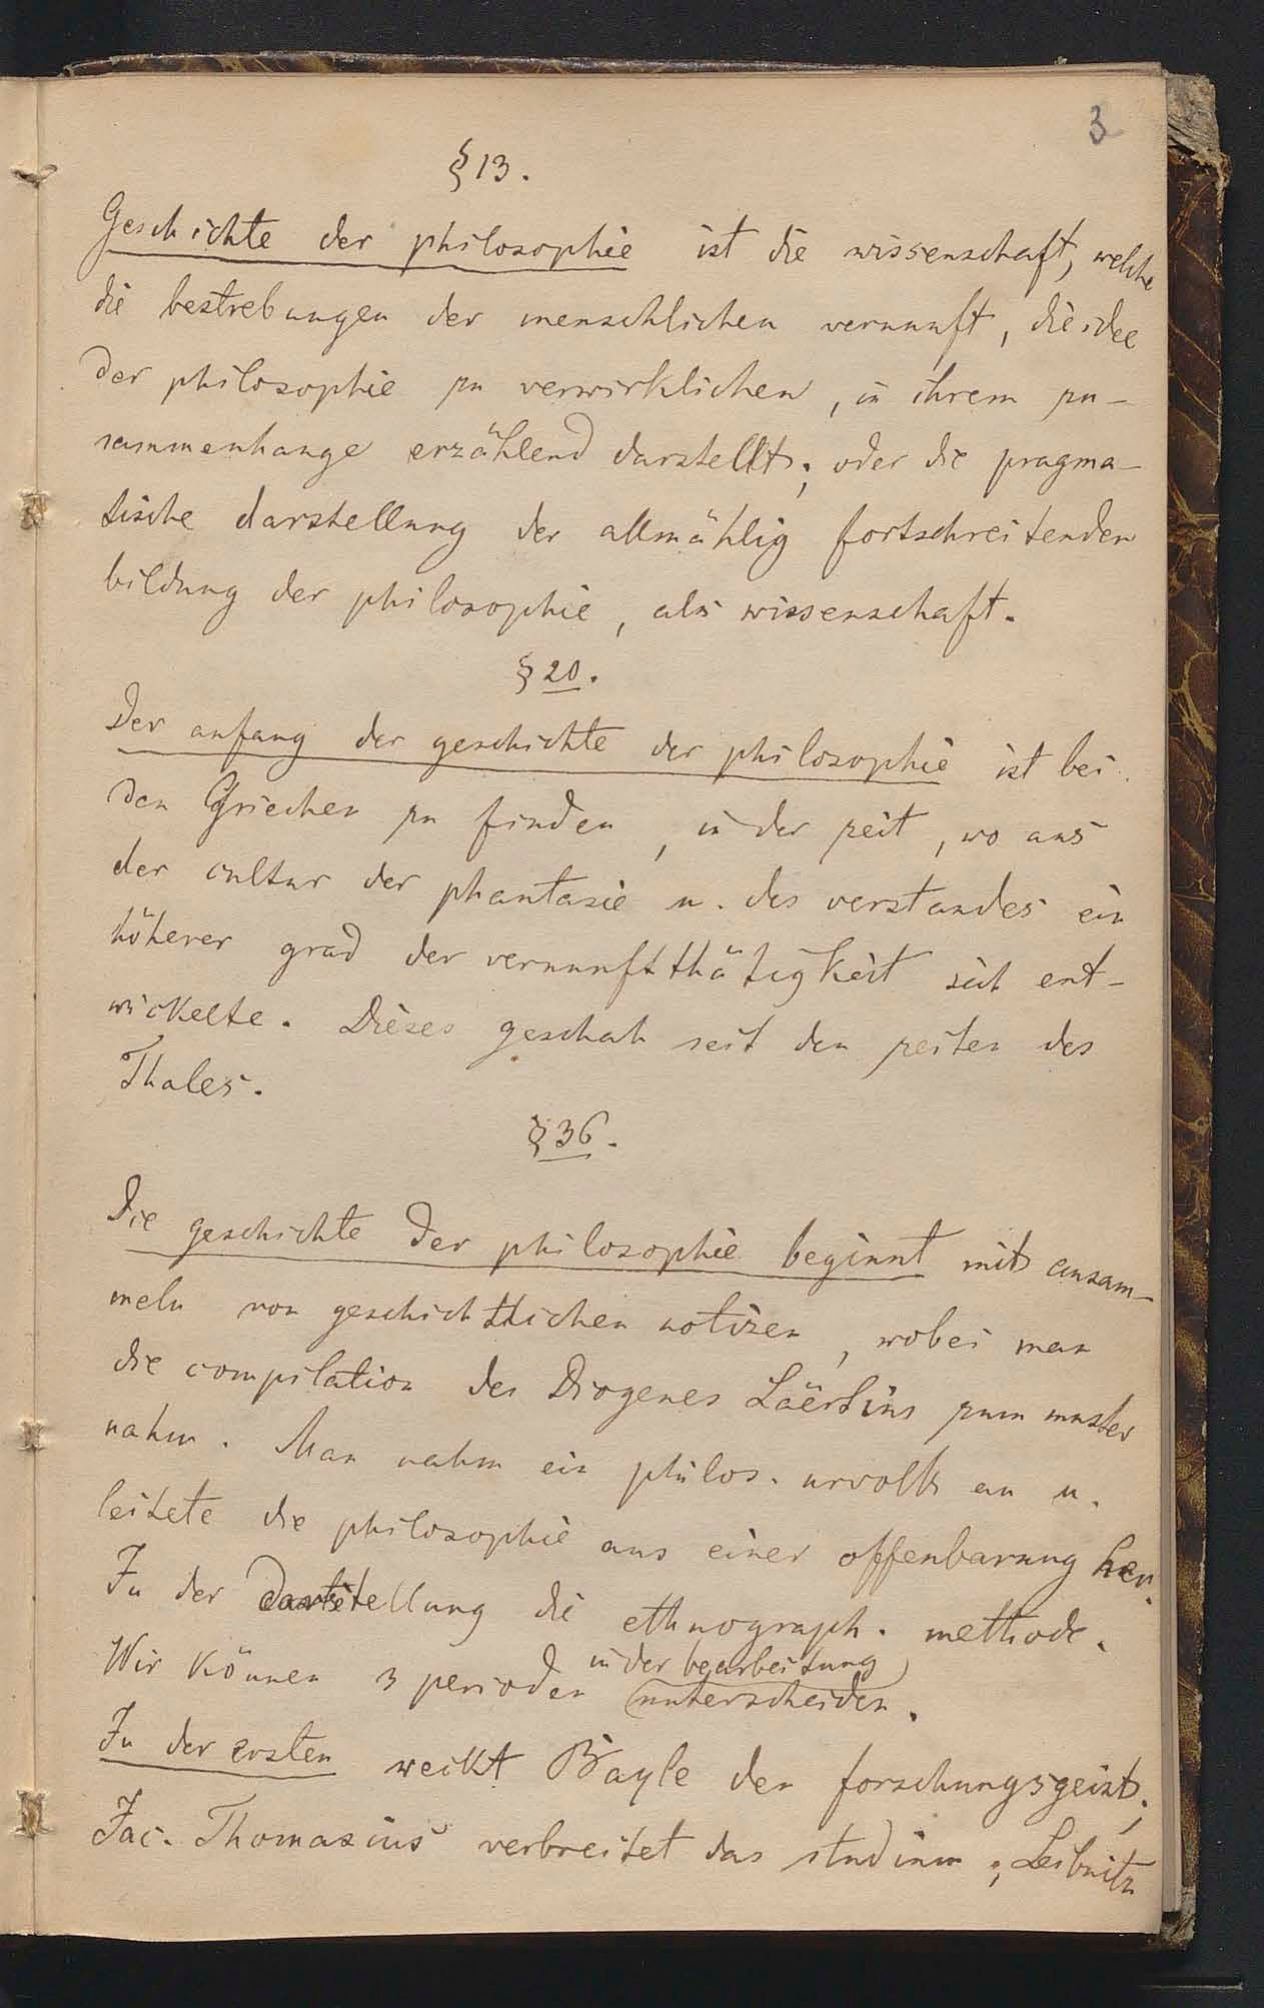 3
§ 13.
Geschichte der philosophie ist die wissenschaft, welche
die bestrebungen der menschlichen vernunft, die idee
der philosophie zu verwirklichen, in ihrem zu-
sammenhange erzählend darstellt; oder die pragma-
tische darstellung der allmählig fortschreitenden
bildung der philosophie, als wissenschaft.
§ 20.
Der anfang der geschichte der philosophie ist bei
den Griechen zu finden, in der zeit, wo aus
der cultur der phantasie u. des verstandes ein
höherer grad der vernunftthätigkeit sich ent-
wickelte. Dieses geschah seit den zeiten des
Thales.
§ 36.
Die geschichte der philosophie beginnt mit ansam-
meln von geschichtlichen notizen, wobei man
die compilation des Diogenes Laërtius zum muster
nahm. Man nahm ein philos. urvolk an u.
leitete die philosophie aus einer offenbarung her.
In der darstellung die ethnograph. methode.
in der bearbeitung
Wir können 3 perioden unterscheiden.
In der ersten weckt Bayle den forschungsgeist;
Jac. Thomasius verbreitet das studium; Leibnitz